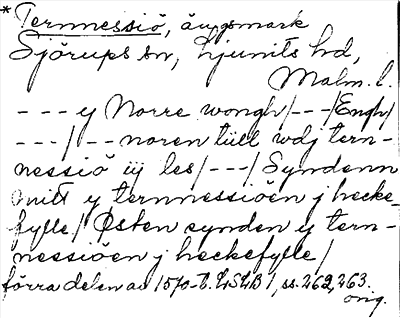 *Ternnessiö, ängsmark
Sjörups sn, Ljunits hd,
Malm. l.
--- y Norre wongh/---/Engh/
---/--noren till wdj tern-
nessiö iij les/---/Syndenn
nitt y ternnessiöen j hecke-
fylle/Østen synden y tern-
nessiöen j heckefylle/
förra delen av 1570-t. LSLB 1, ss. 262, 263.
orig.